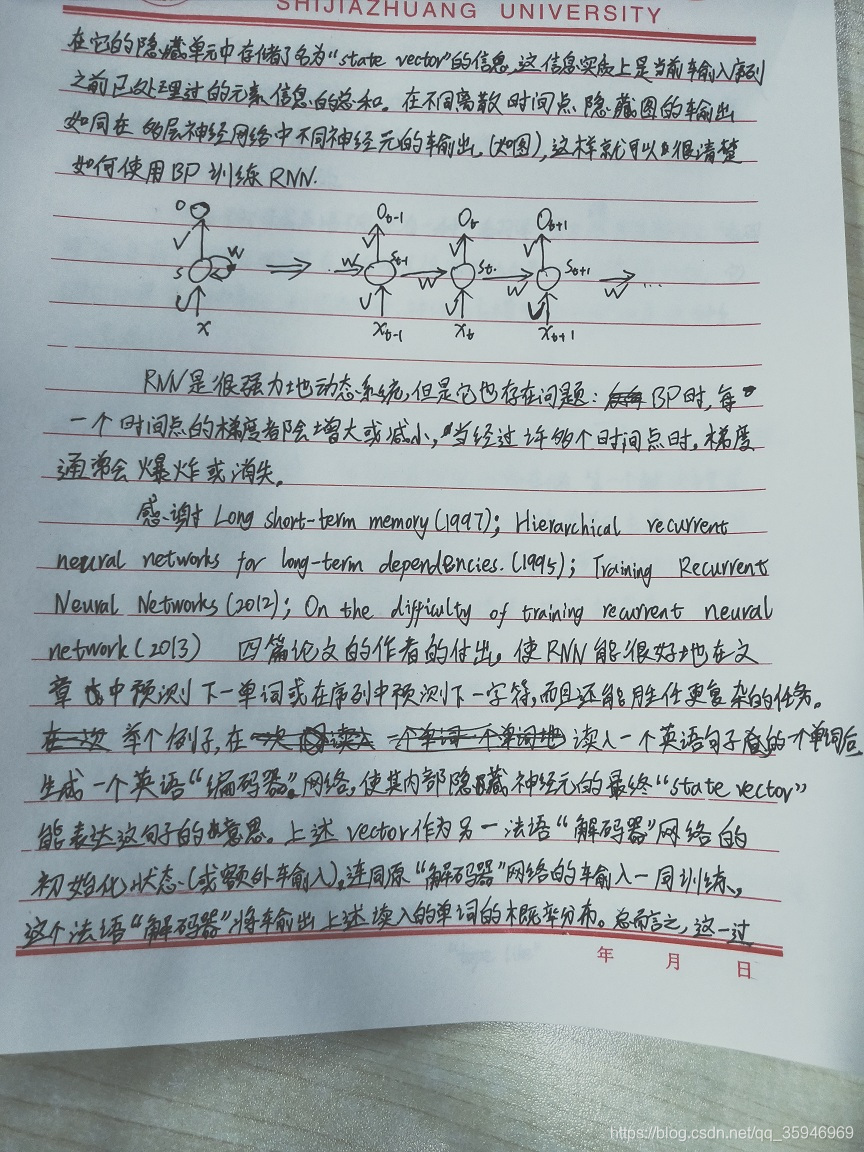 SHIJIAZHUANG UNIVERSITY
在它的隐藏单元中存储了名为“state vector”的信息,这信息实质上是当前输入序列
之前已处理过的元素信息的总和。在不同离散时间点隐藏图的输出
如同在 的层神经网络中不同神经元的输出,(如图),这样就可以很清楚
如何使用BP训练RNN.
O Ot-1 Ot Ot+1
V V V V
S W St-1 St St+1
W W W W ...
U U U U
x xt-1 xt xt+1
RNN是很强力地动态系统,但是它也存在问题: BP时,每
一个时间点的梯度都会增大或减小,当经过许多个时间点时,梯度
通常会爆炸或消失。
感谢 Long short-term memory(1997); Hierarchical recurrent
neural networks for long-term dependencies.(1995); Training Recurrent
Neural Networks(2012); On the difficulty of training recurrent neural
network(2013) 四篇论文的作者的付出,使RNN能很好地在文
章中预测下一单词或在序列中预测下一字符,而且还能胜任更复杂的任务。
举个例子,在 读入一个英语句子的一个单词后
生成一个英语“编码器”网络,使其内部隐藏神经元的最终“state vector”
能表达这句子的意思。上述vector作为另一法语“解码器”网络的
初始化状态(或额外输入),连同原“解码器”网络的输入一同训练,
这个法语“解码器”将输出上述读入的单词的概率分布。总而言之,这一过
年 月 日
https://blog.csdn.net/qq_35946969